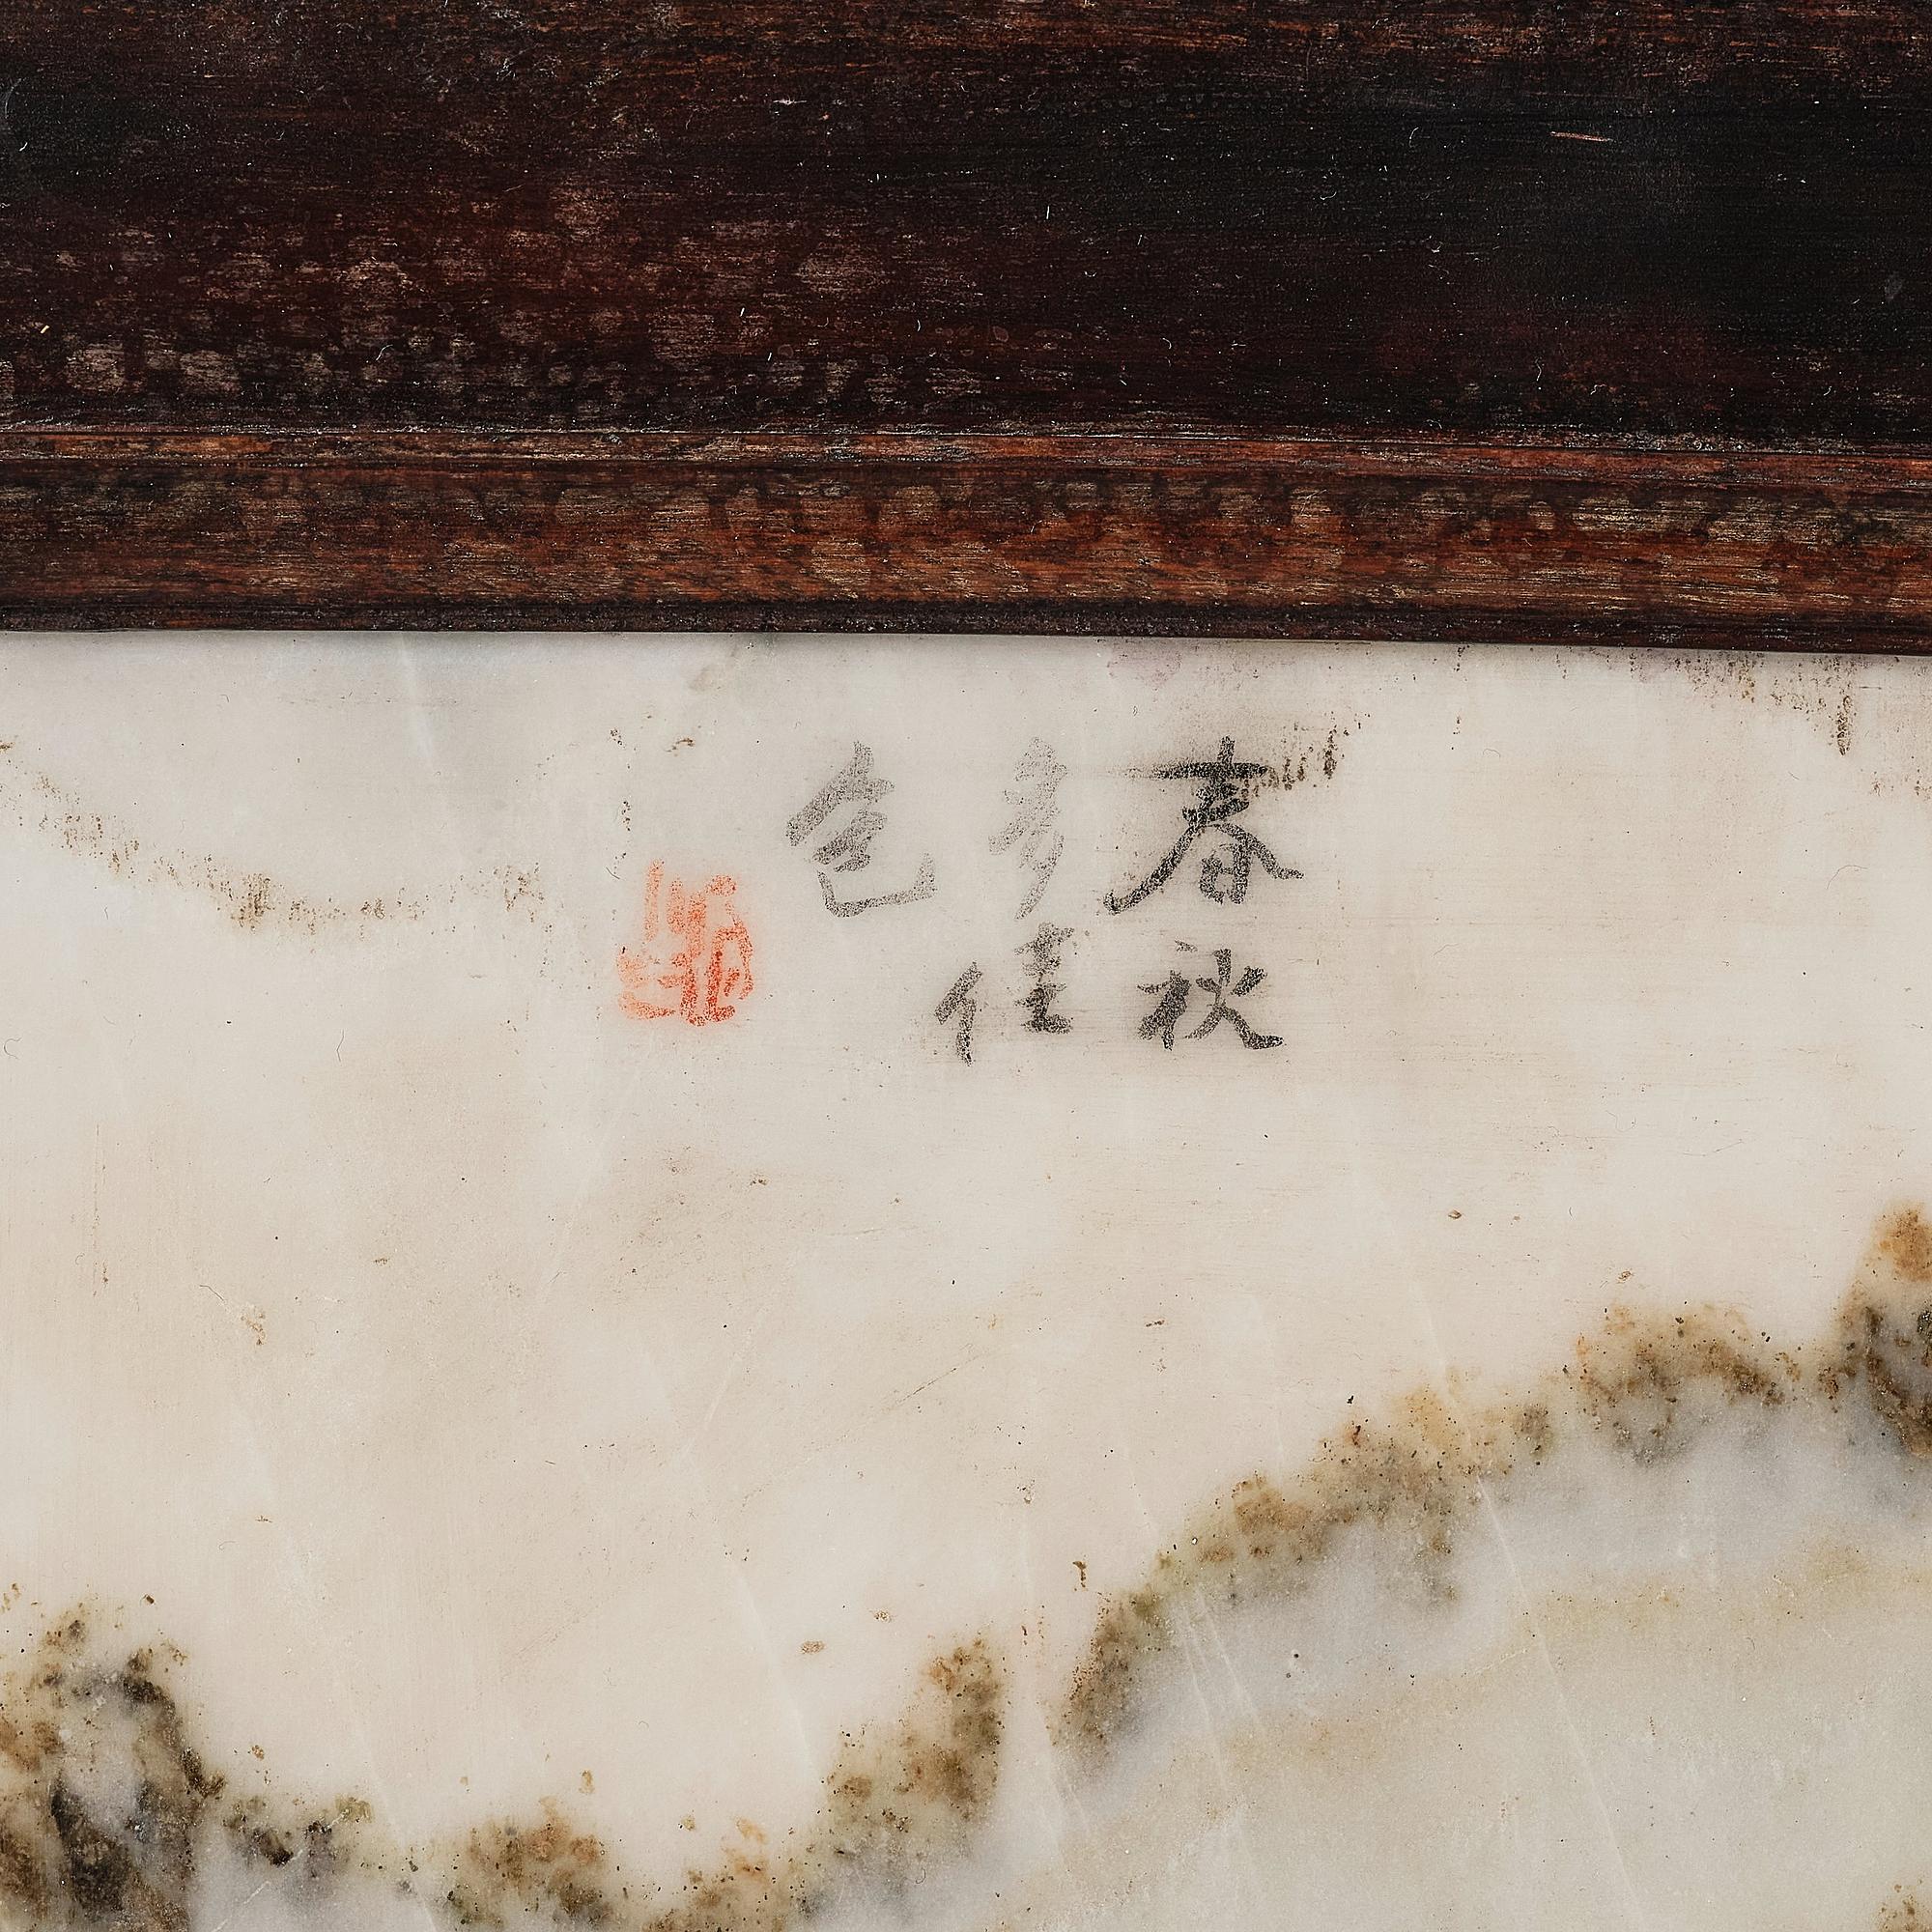 春秋
多佳
色